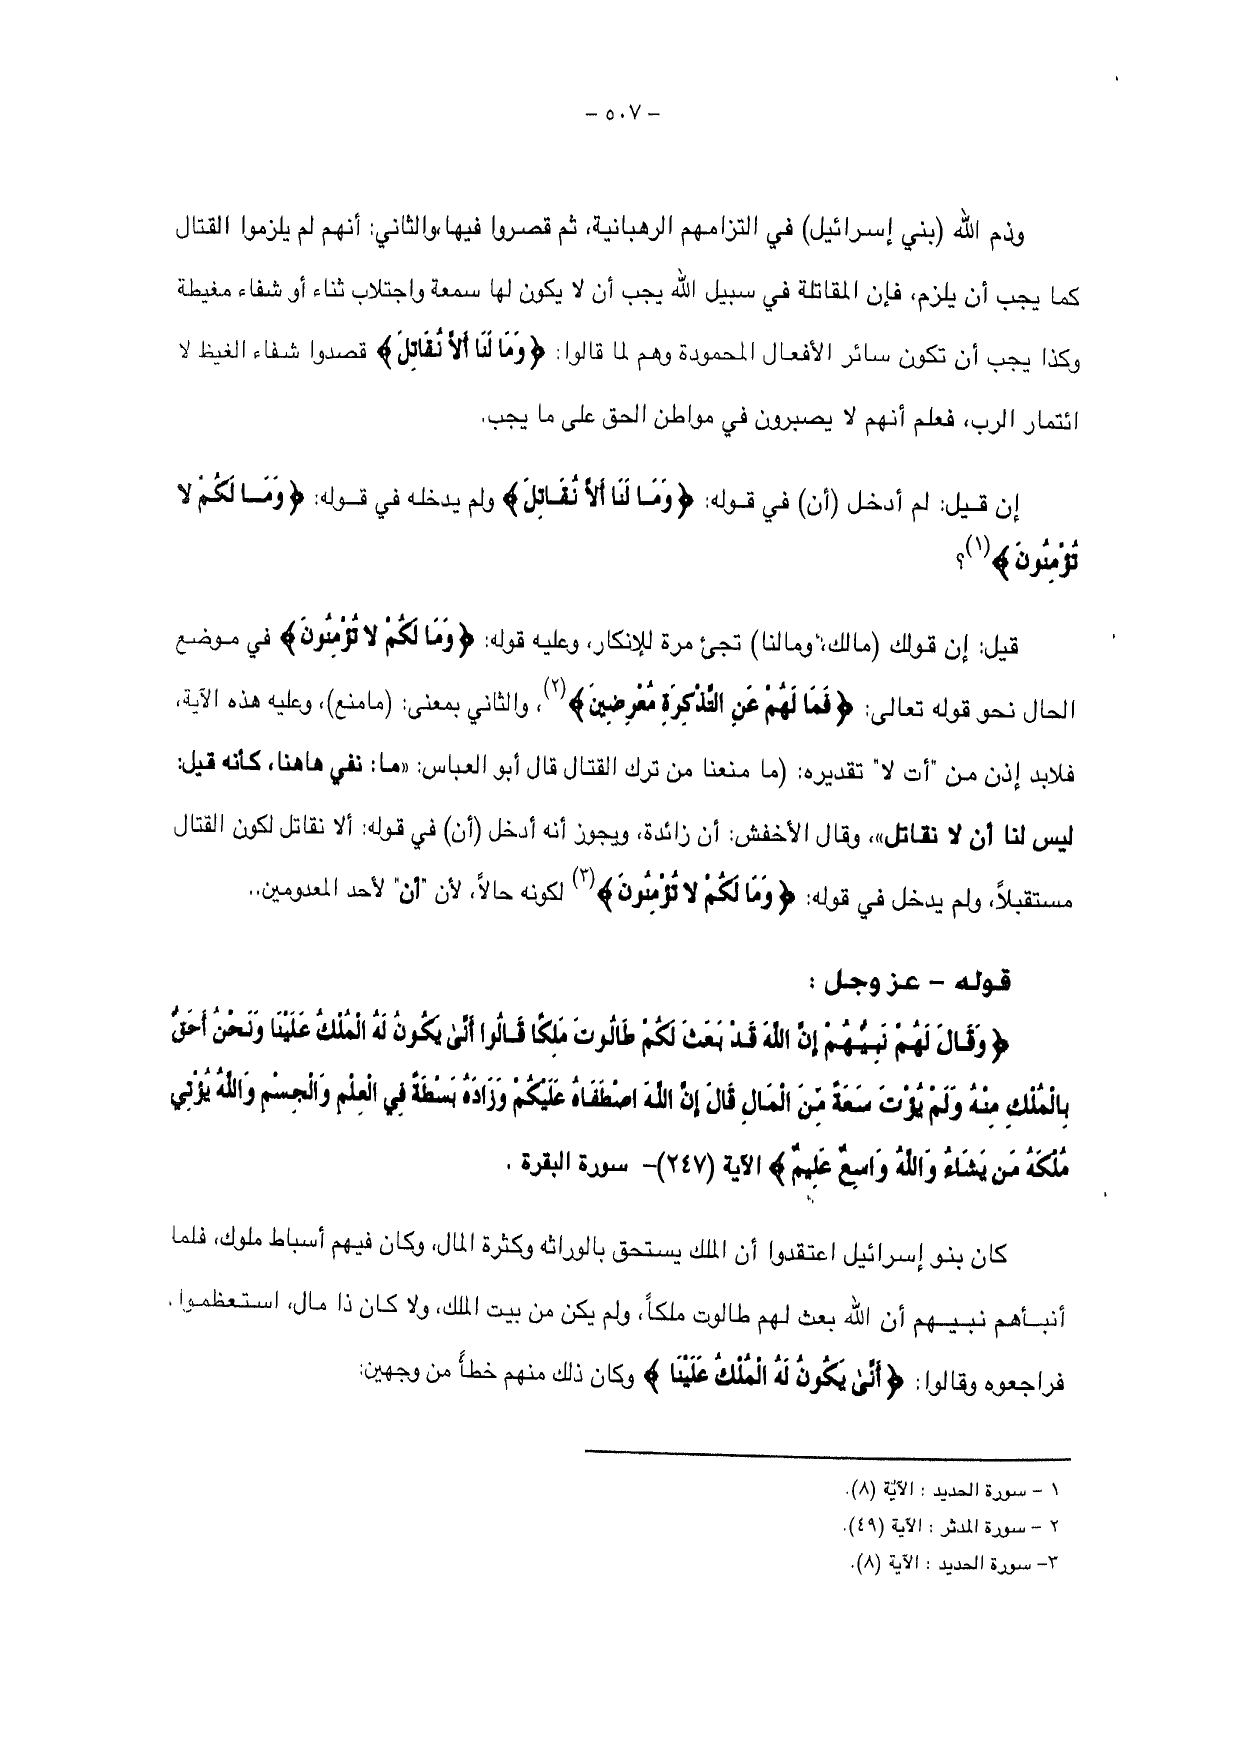 - ٥٠٧ -
وذم الله (بني إسرائيل) في التزامهم الرهبانية، ثم قصروا فيها،والثاني: أنهم لم يلزموا القتال
كما يجب أن يلزم، فإن المقاتلة في سبيل الله يجب أن لا يكون لها سمعة واجتلاب ثناء أو شفاء مغيطة
وكذا يجب أن تكون سائر الأفعال المحمودة وهم لما قالوا: ﴿وَمَا لَنَا أَلاَّ نُقَاتِلَ﴾ قصدوا شفاء الغيظ لا
ائتمار الرب، فعلم أنهم لا يصبرون في مواطن الحق على ما يجب.
إن قيل: لم أدخل (أن) في قوله: ﴿وَمَا لَنَا أَلاَّ نُقَاتِلَ﴾ ولم يدخله في قوله: ﴿وَمَا لَكُمْ لا
تُؤْمِنُونَ﴾(١)؟
قيل: إن قولك (مالك، ومالنا) تجئ مرة للإنكار، وعليه قوله: ﴿وَمَا لَكُمْ لا تُؤْمِنُونَ﴾ في موضع
الحال نحو قوله تعالى: ﴿فَمَا لَهُمْ عَنِ التَّذْكِرَةِ مُعْرِضِينَ﴾(٢)، والثاني بمعنى: (مامنع)، وعليه هذه الآية،
فلابد إذن من "أت لا" تقديره: (ما منعنا من ترك القتال قال أبو العباس: «ما: نفي هاهنا، كأنه قيل:
ليس لنا أن لا نقاتل»، وقال الأخفش: أن زائدة، ويجوز أنه أدخل (أن) في قوله: ألا نقاتل لكون القتال
مستقبلاً، ولم يدخل في قوله: ﴿وَمَا لَكُمْ لا تُؤْمِنُونَ﴾(٣) لكونه حالاً، لأن "أن" لأحد المعدومين..
قوله - عز وجل :
﴿وَقَالَ لَهُمْ نَبِيُّهُمْ إِنَّ اللَّهَ قَدْ بَعَثَ لَكُمْ طَالُوتَ مَلِكًا قَالُوا أَنَّىٰ يَكُونُ لَهُ الْمُلْكُ عَلَيْنَا وَنَحْنُ أَحَقُّ
بِالْمُلْكِ مِنْهُ وَلَمْ يُؤْتَ سَعَةً مِّنَ الْمَالِ قَالَ إِنَّ اللَّهَ اصْطَفَاهُ عَلَيْكُمْ وَزَادَهُ بَسْطَةً فِي الْعِلْمِ وَالْجِسْمِ وَاللَّهُ يُؤْتِي
مُلْكَهُ مَن يَشَاءُ وَاللَّهُ وَاسِعٌ عَلِيمٌ﴾ الآية (٢٤٧)- سورة البقرة .
كان بنو إسرائيل اعتقدوا أن الملك يستحق بالوراثه وكثرة المال، وكان فيهم أسباط ملوك، فلما
أنبأهم نبيهم أن الله بعث لهم طالوت ملكاً، ولم يكن من بيت الملك، ولا كان ذا مال، استعظموا.
فراجعوه وقالوا: ﴿أَنَّىٰ يَكُونُ لَهُ الْمُلْكُ عَلَيْنَا﴾ وكان ذلك منهم خطأً من وجهين:
١ - سورة الحديد : الآية (٨).
٢ - سورة المدثر : الآية (٤٩).
٣- سورة الحديد : الآية (٨).